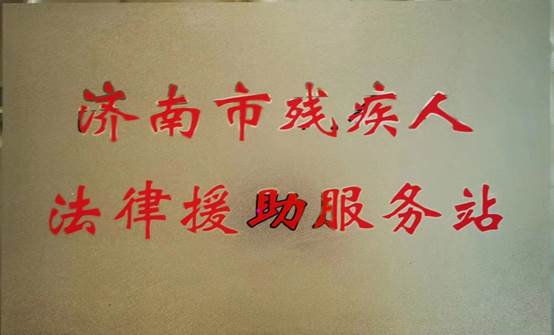 济南市残疾人
法律援助服务站